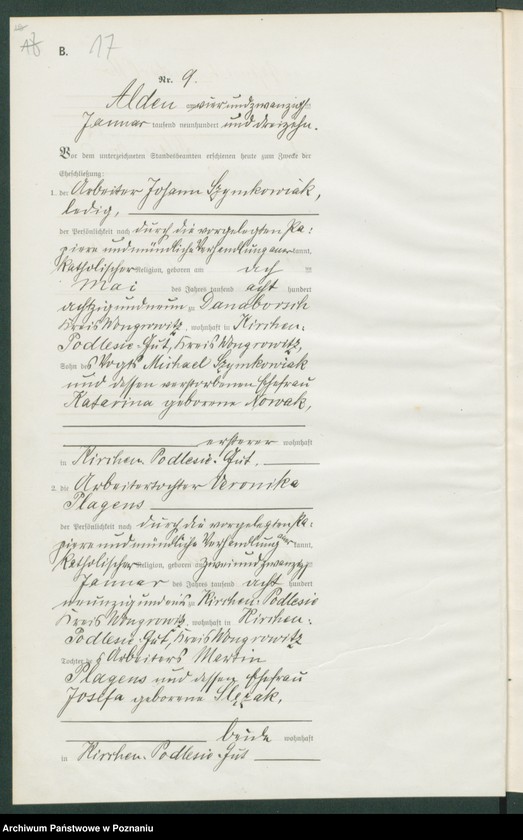 B. 17
Nr. 9.
Alden am vierundzwanzig ten
Januar tausend neunhundert und dreizehn.
Vor dem unterzeichneten Standesbeamten erschienen heute zum Zwecke der
Eheschließung:
1. der Arbeiter Johann Szymkowiak,
ledig,
der Persönlichkeit nach durch die vorgelegten Pa=
piere und mündliche Verhandlung aner kannt,
katholischer Religion, geboren am ach ten
Mai des Jahres tausend acht hundert
achtzig und neun zu Danaborsch
Kreis Wongrowitz, wohnhaft in Kirchen=
Podlesie-Gut, Kreis Wongrowitz,
Sohn des Vogts Michael Szymkowiak
und dessen verstorbenen Ehefrau
Katarina geborene Nowak,
ersterer wohnhaft
in Kirchen-Podlesie-Gut.
2. die Arbeitertochter Veronika
Plagens
der Persönlichkeit nach durch die vorgelegten Pa=
piere und mündliche Verhandlung aner kannt,
katholischer Religion, geboren am zweiundzwanzig
Januar des Jahres tausend acht hundert
neunzig und eins zu Kirchen-Podlesie
Kreis Wongrowitz, wohnhaft in Kirchen=
Podlesie-Gut, Kreis Wongrowitz
Tochter des Arbeiters Martin
Plagens und dessen Ehefrau
Josefa geborene Slezak,
beide wohnhaft
in Kirchen-Podlesie-Gut
Archiwum Państwowe w Poznaniu